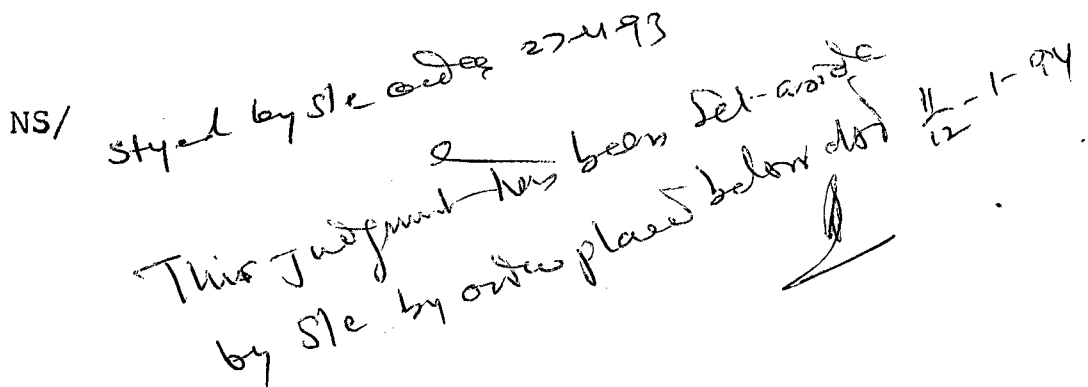 NS/ Styed by S/c order 27-4-93
This Judgment has been Set-aside
by S/c by order placed below dtd 11/12-1-94